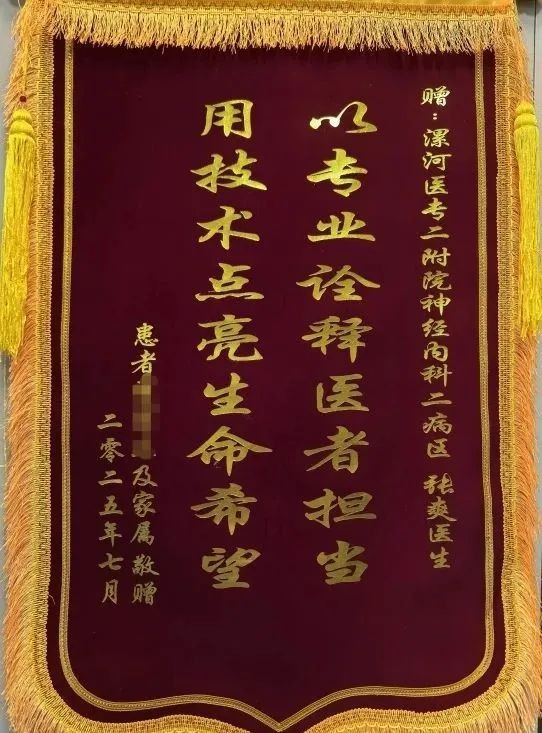 赠：漯河医专二附院神经内科二病区 张爽医生
以专业诠释医者担当
用技术点亮生命希望
患者 及家属敬赠
二零二五年七月